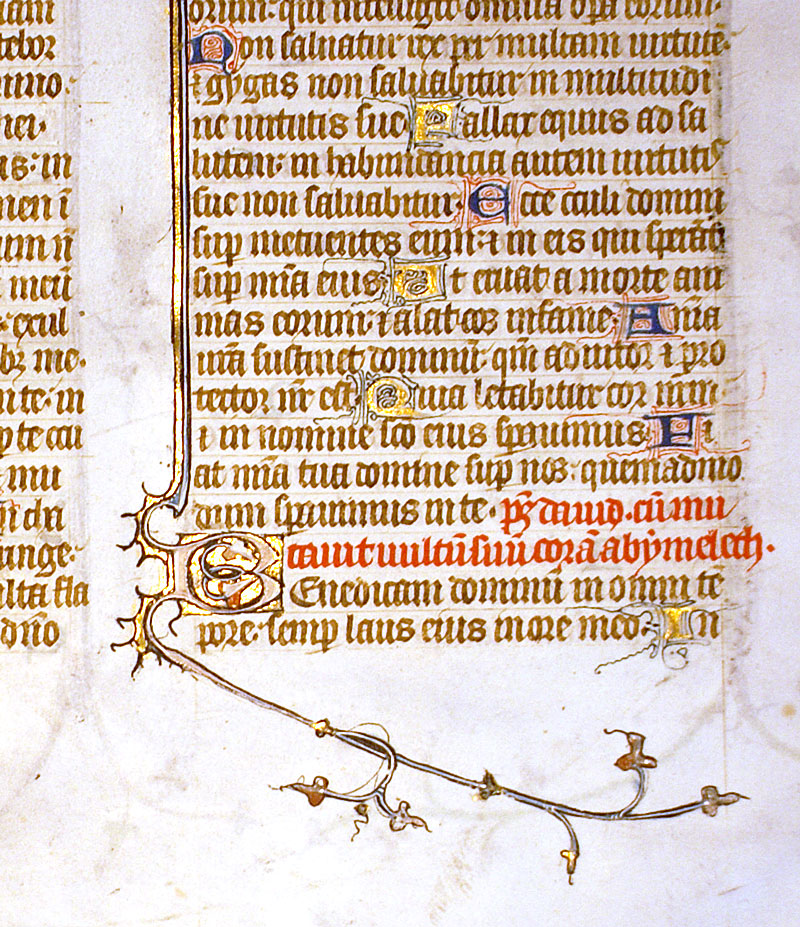 tebor
as: in
men ī
um n̄
meū
excul
me·
te· in
p te
mu
unge·
ltā fla
dn̄o
orum· qui intelligit omnia opa eorum·
Non saluatur rex per multam uirtutē·
⁊ gygas non saluabitur in multitudi
ne uirtutis sue Fallax equus ad sa
lutem· in habundancia autem uirtutis
sue non saluabitur· Ecce oculi domini
sup metuentes eum· ⁊ in eis qui sperāt
sup mīa eius: Ut eruat a morte ani
mas eorum· ⁊ alat eos in fame· Ania
nrā sustinet dominū· qm̄ adiutor ⁊ pro
tector nr̄ est· Quia letabitur cor nrm·
⁊ in nomine sc̄o eius sperauimus· Fi
at mīa tua domine sup nos· quemadmo
dum sperauimus in te· ps̄ dauid· cū mu
tauit uultū suū corā abymelech·
BEnedicam dominū in omni tē
pore· semp laus eius in ore meo· In